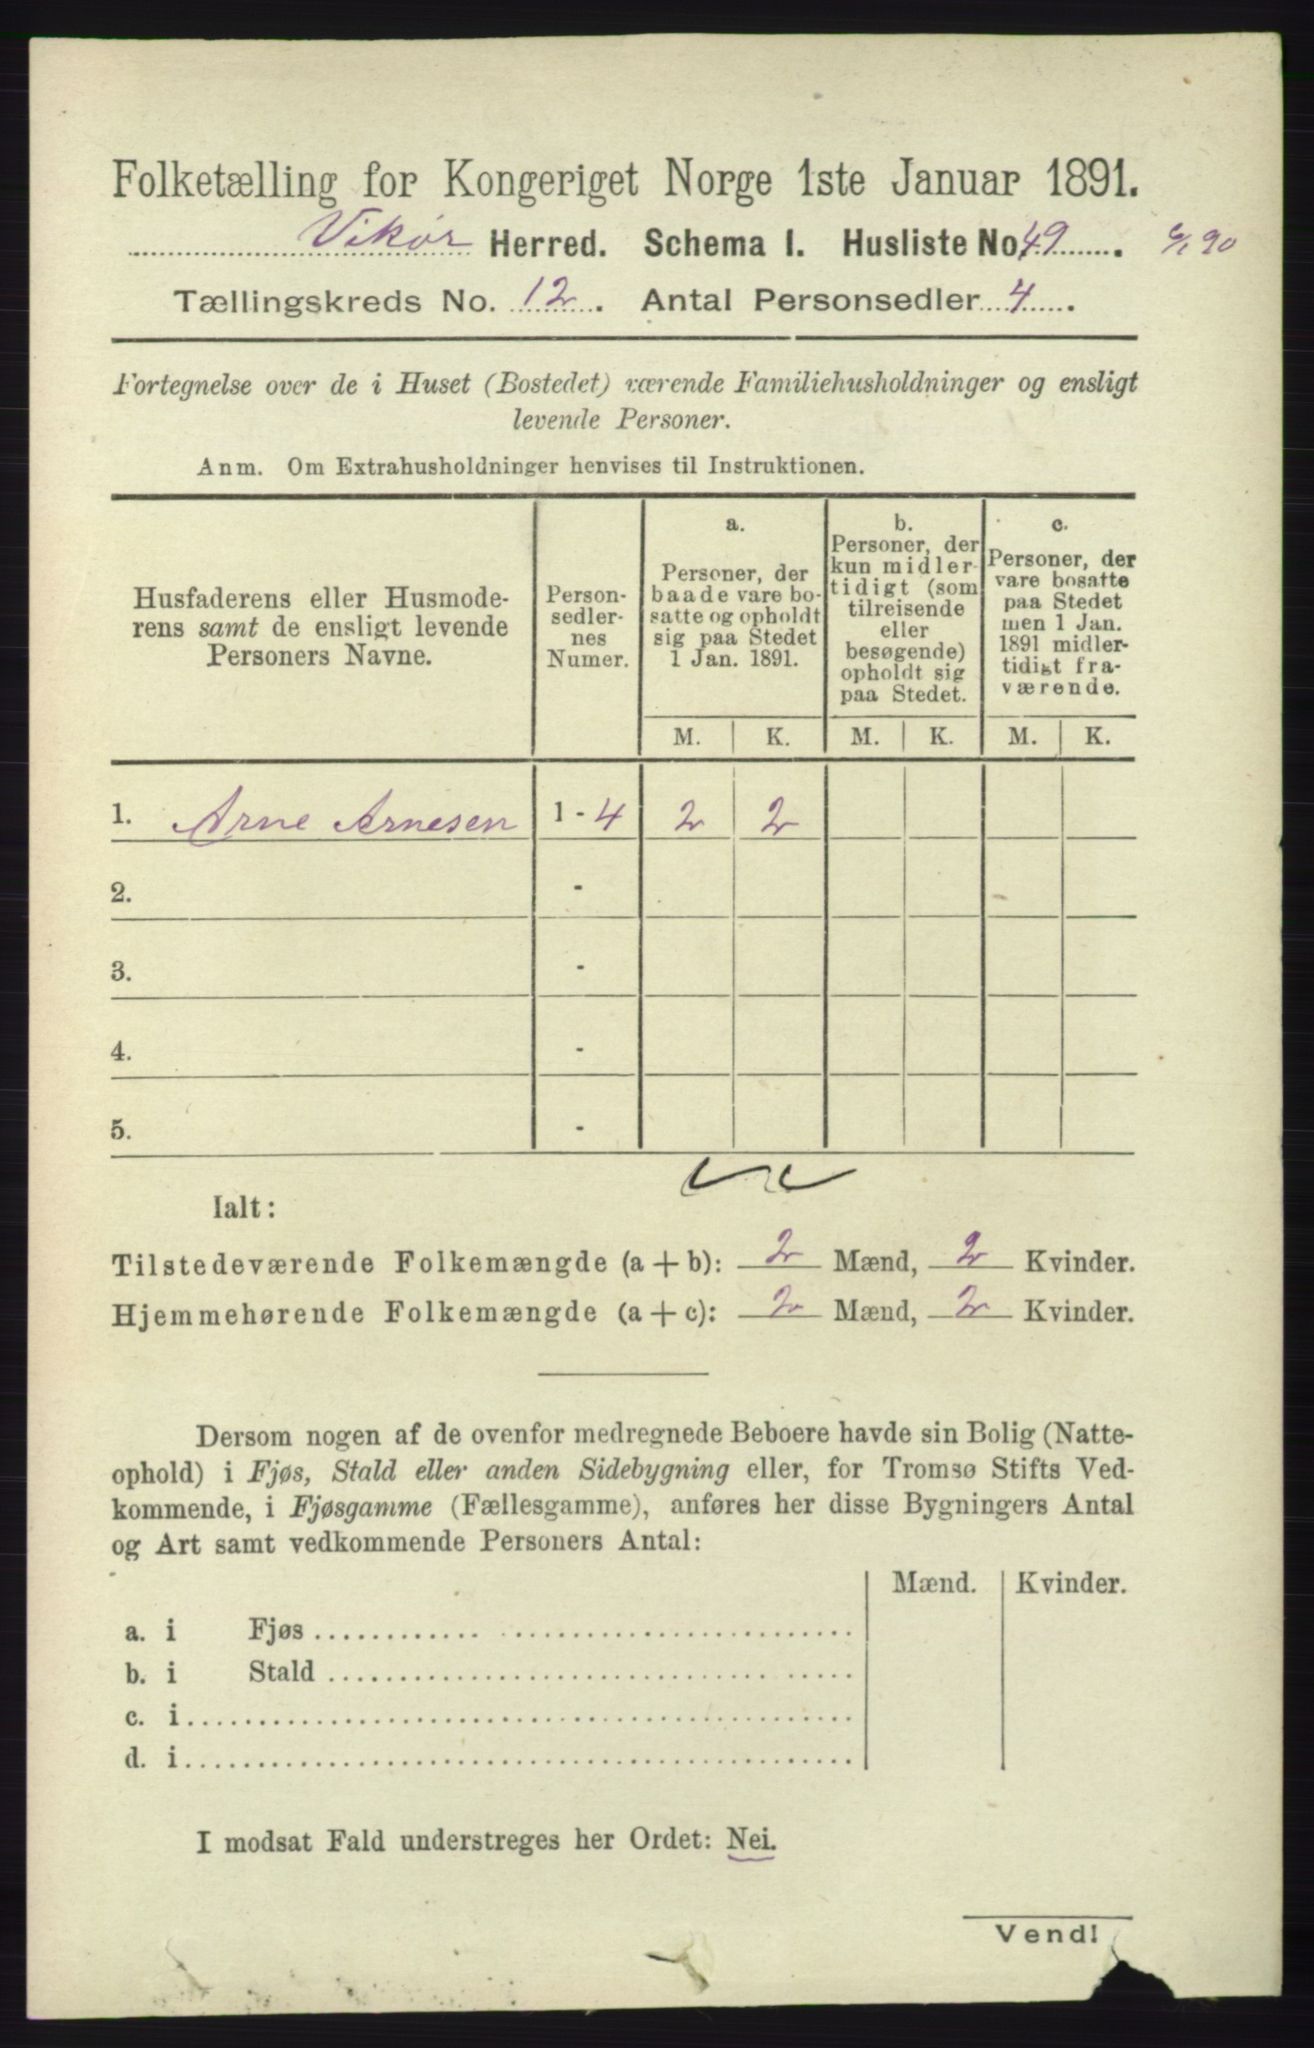 Folketælling for Kongeriget Norge 1ste Januar 1891.
Vikør Herred. Schema I. Husliste No. 49.
Tællingskreds No. 12. Antal Personsedler 4.
Fortegnelse over de i Huset (Bostedet) værende Familiehusholdninger og ensligt
levende Personer.
Anm. Om Extrahusholdninger henvises til Instruktionen.
Husfaderens eller Husmode-
rens samt de ensligt levende
Personers Navne.
Person-
sedler-
nes
Numer.
a.
Personer, der
baade vare bo-
satte og opholdt
sig paa Stedet
1 Jan. 1891.
b.
Personer, der
kun midler-
tidigt (som
tilreisende
eller
besøgende)
opholdt sig
paa Stedet.
c.
Personer, der
vare bosatte
paa Stedet
men 1 Jan.
1891 midler-
tidigt fra-
værende.
M. K. M. K. M. K.
1. Arne Arnesen 1 - 4 2 2
2. -
3. -
4. -
5. -
Ialt:
Tilstedeværende Folkemængde (a + b): 2 Mænd, 2 Kvinder.
Hjemmehørende Folkemængde (a + c): 2 Mænd, 2 Kvinder.
Dersom nogen af de ovenfor medregnede Beboere havde sin Bolig (Natte-
ophold) i Fjøs, Stald eller anden Sidebygning eller, for Tromsø Stifts Ved-
kommende, i Fjøsgamme (Fællesgamme), anføres her disse Bygningers Antal
og Art samt vedkommende Personers Antal:
Mænd. Kvinder.
a. i Fjøs
b. i Stald
c. i
d. i
I modsat Fald understreges her Ordet: Nei.
Vend!